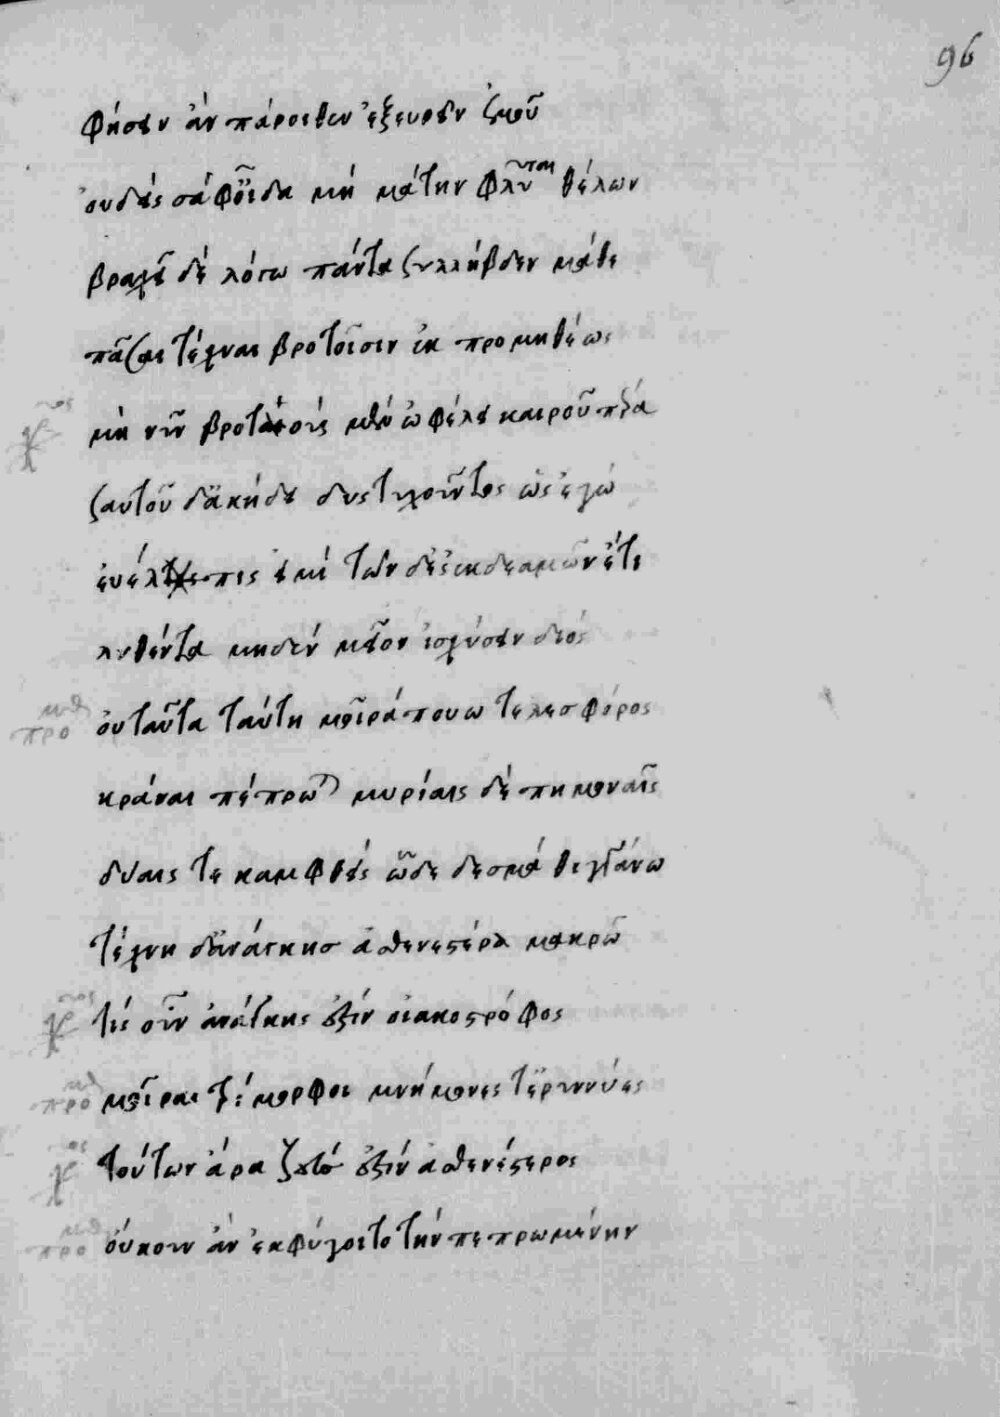 96
φήσειεν ἂν πάροιθεν ἐξευρεῖν ἐμοῦ
οὐδεὶς σάφ' οἶδα μὴ μάτην φλῦσαι θέλων
βραχεῖ δὲ λόγω πάντα συλλήβδην μάθε
πᾶσαι τέχναι βροτοῖσιν ἐκ προμηθέως
χορος μὴ νῦν βροτοὺς μὲν ὠφέλει καιροῦ πέρα
σαυτοῦ δ' ἀκήδει δυστυχοῦντος ὡς ἐγὼ
εὔελπις εἰμὶ τῶν δέ σ' ἐκ δεσμῶν ἔτι
λυθέντα μηδὲν μεῖον ἰσχύσειν διός
προμηθ οὐ ταῦτα ταύτη μοῖρά πουω τελεσφόρος
κρᾶναι πέπρωται μυρίαις δὲ πημοναῖς
δύαις τε καμφθεὶς ὧδε δεσμὰ φυγγάνω
τέχνη δ' ἀνάγκης ἀσθενεστέρα μακρῶ
χορος τίς οὖν ἀνάγκης ἐστὶν οἰακοστρόφος
προμηθ μοῖραι τρίμορφοι μνήμονές τ' ἐριννύες
χορος τούτων ἄρα ζεύς ἐστιν ἀσθενέστερος
προμηθ οὔκουν ἂν ἐκφύγοι τὸ τὴν πεπρωμένην